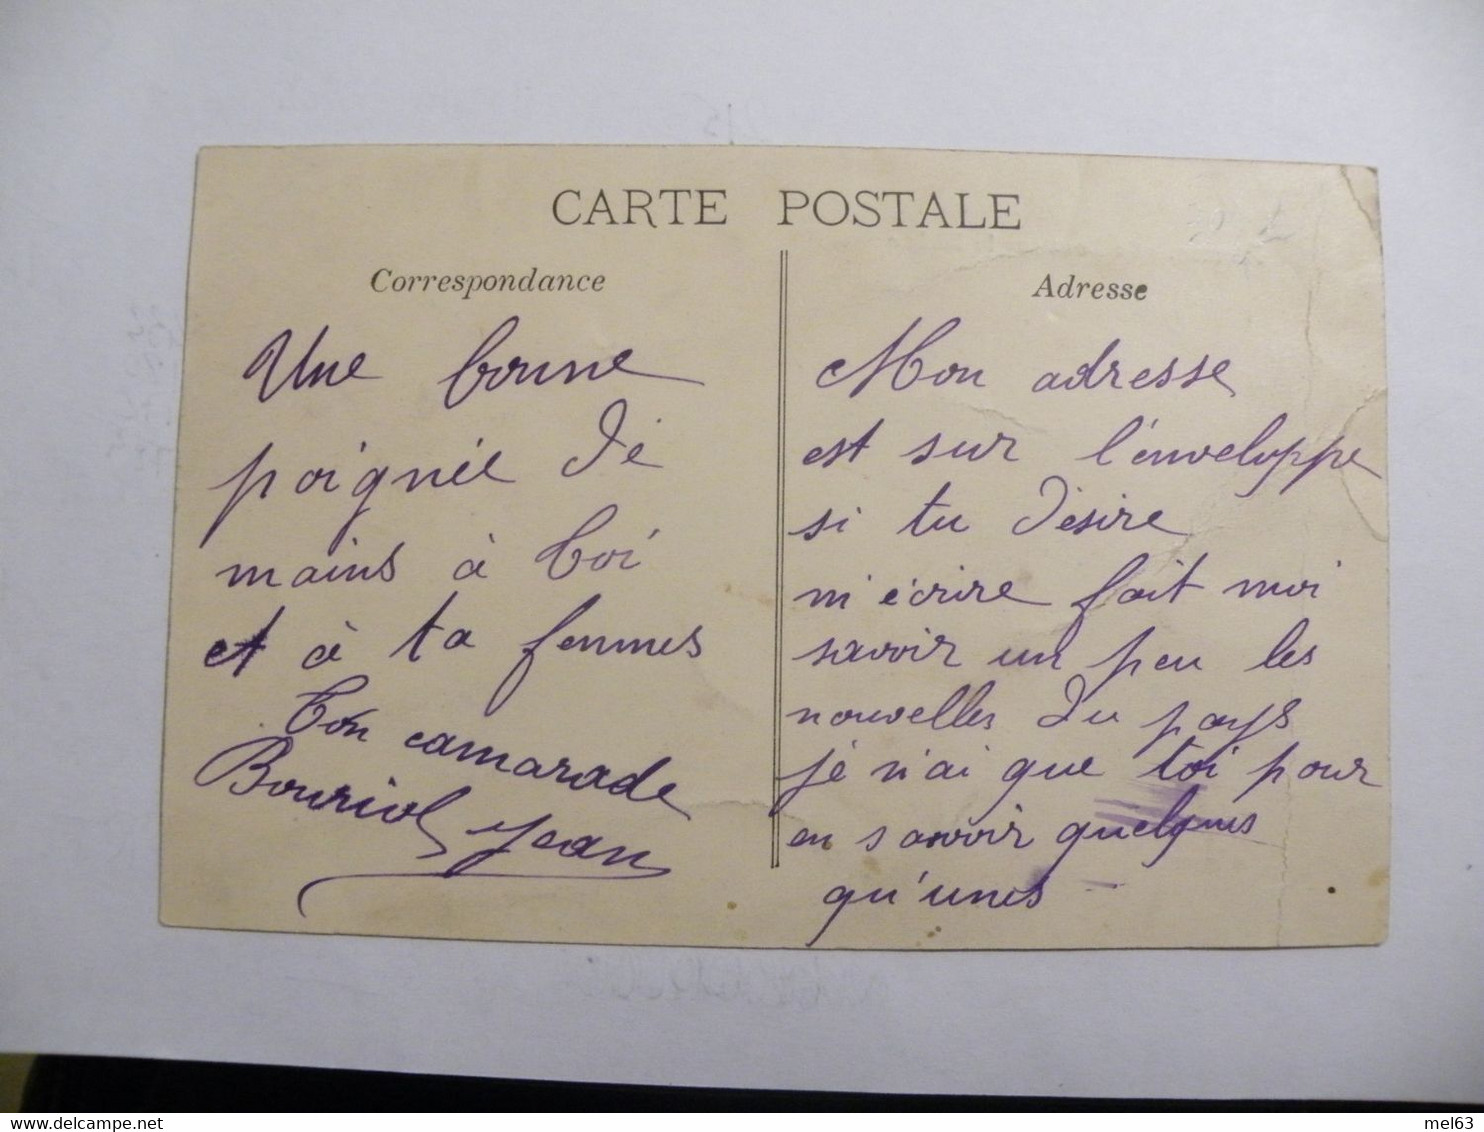 CARTE POSTALE
Correspondance
Une bonne
poignée de
mains à toi
et à ta femmes
Ton camarade
Bouriol Jean
Adresse
Mon adresse
est sur l'enveloppe
si tu désire
m'écrire fait moi
savoir un peu les
nouvelles du pays
je n'ai que toi pour
en savoir quelques
qu'unes
mel63